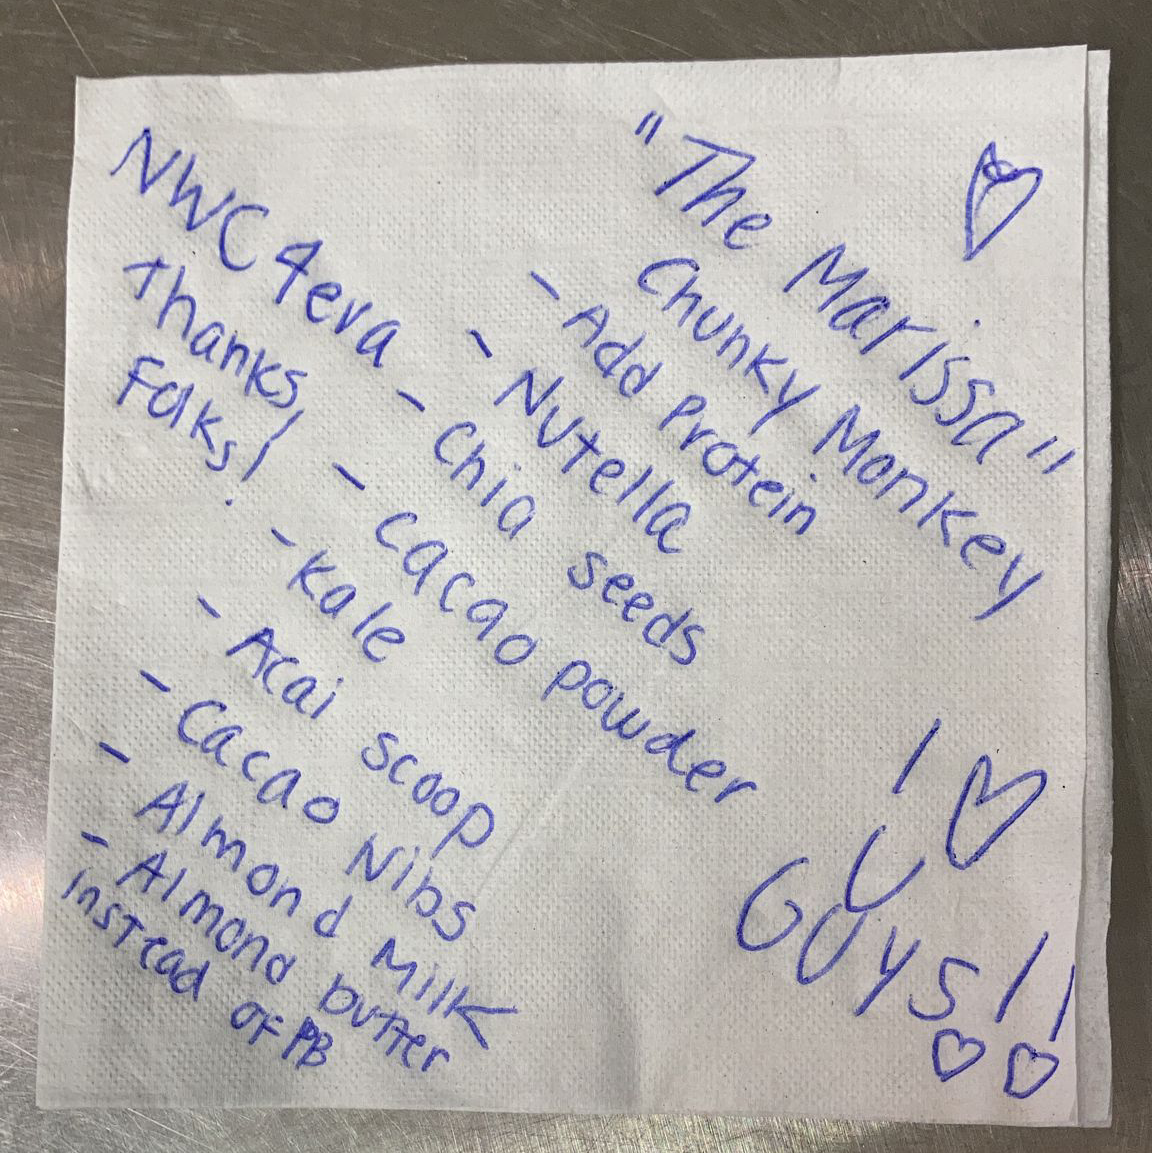 "The Marissa"
Chunky Monkey
- Add Protein
- Nutella
- Chia seeds
- cacao powder
- Kale
- Acai scoop
- Cacao Nibs
- Almond Milk
- Almond butter
instead of PB
NWC 4eva
Thanks,
Folks!
I ♡
U
GUYS!!